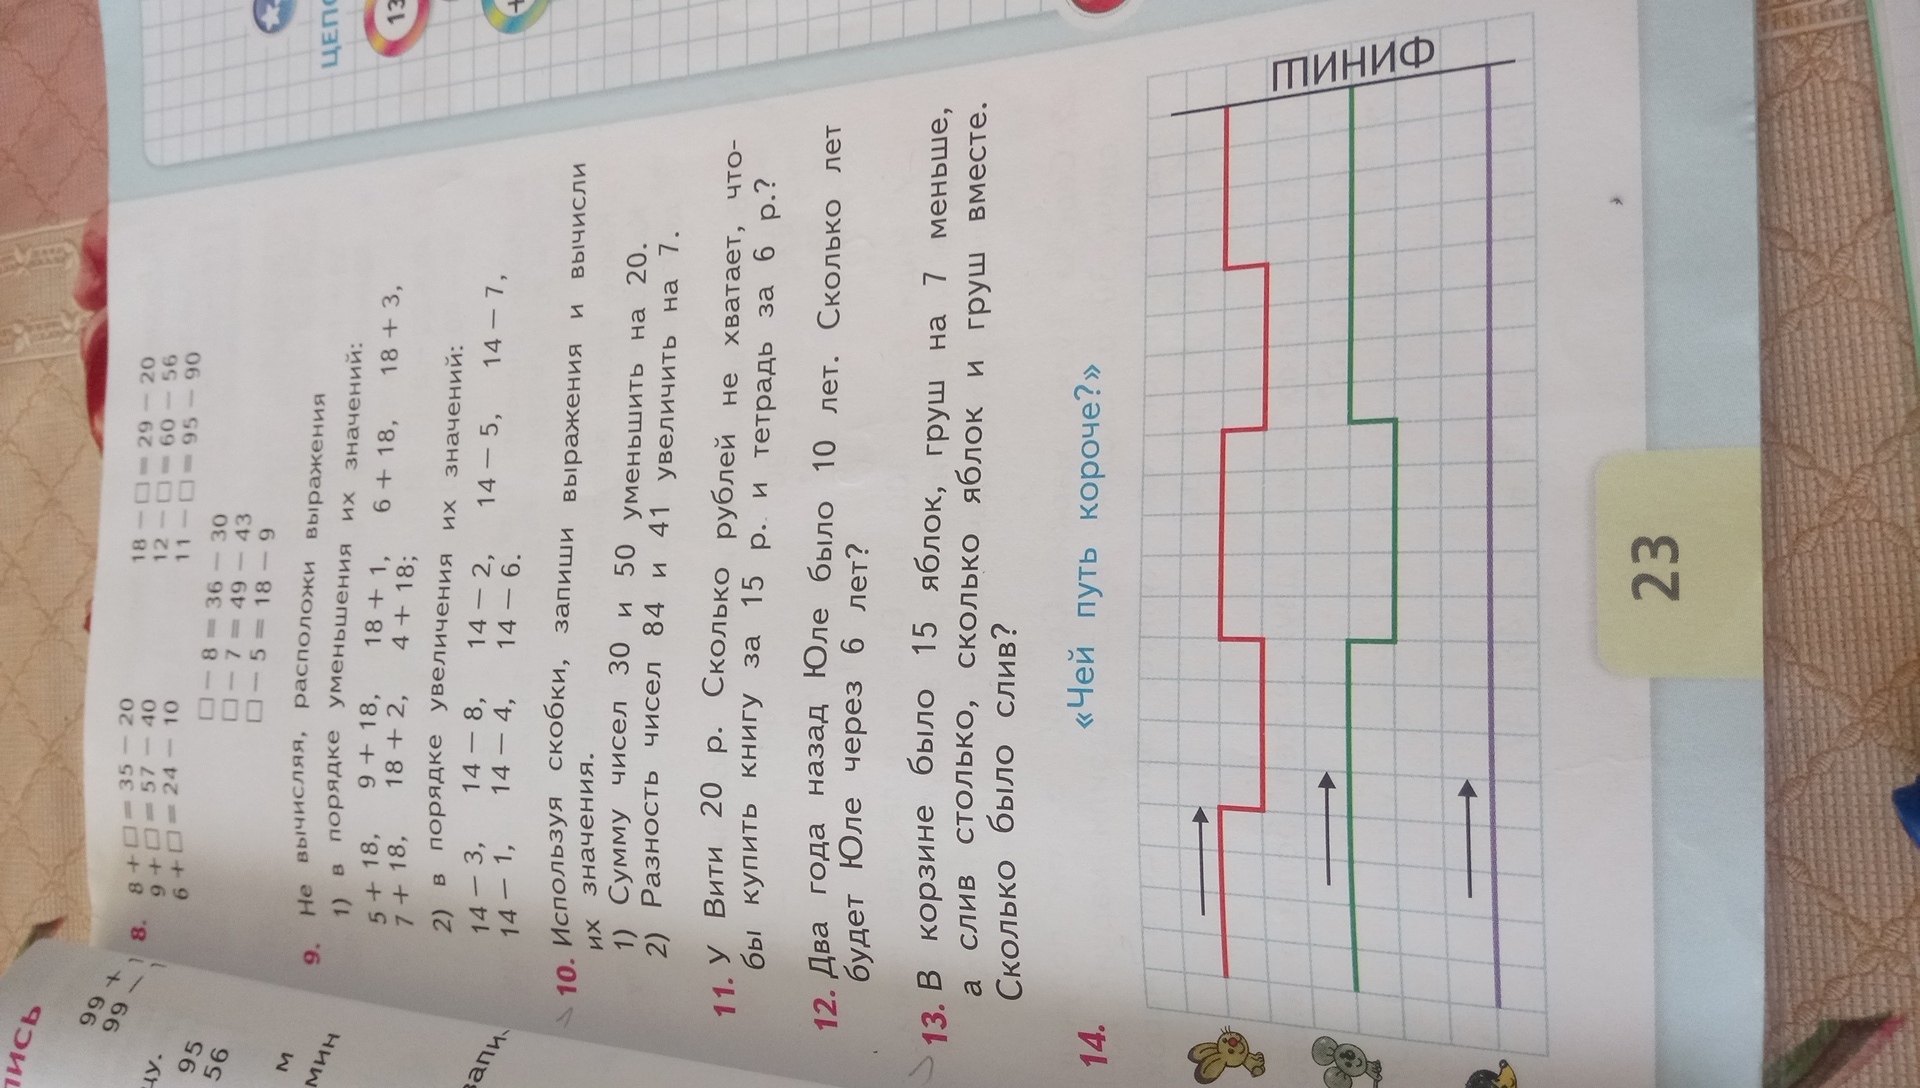 пись
99 +
99 −
95
56
м
мин
ЦЕПО
13
+
8. 8 + □ = 35 − 20
9 + □ = 57 − 40
6 + □ = 24 − 10
□ − 8 = 36 − 30
□ − 7 = 49 − 43
□ − 5 = 18 − 9
18 − □ = 29 − 20
12 − □ = 60 − 56
11 − □ = 95 − 90
9. Не вычисляя, расположи выражения
1) в порядке уменьшения их значений:
5 + 18, 9 + 18, 18 + 1, 6 + 18, 18 + 3,
7 + 18, 18 + 2, 4 + 18;
2) в порядке увеличения их значений:
14 − 3, 14 − 8, 14 − 2, 14 − 5, 14 − 7,
14 − 1, 14 − 4, 14 − 6.
10. Используя скобки, запиши выражения и вычисли
их значения.
1) Сумму чисел 30 и 50 уменьшить на 20.
2) Разность чисел 84 и 41 увеличить на 7.
11. У Вити 20 р. Сколько рублей не хватает, что-
бы купить книгу за 15 р. и тетрадь за 6 р.?
12. Два года назад Юле было 10 лет. Сколько лет
будет Юле через 6 лет?
13. В корзине было 15 яблок, груш на 7 меньше,
а слив столько, сколько яблок и груш вместе.
Сколько было слив?
14. «Чей путь короче?»
ФИНИШ
23